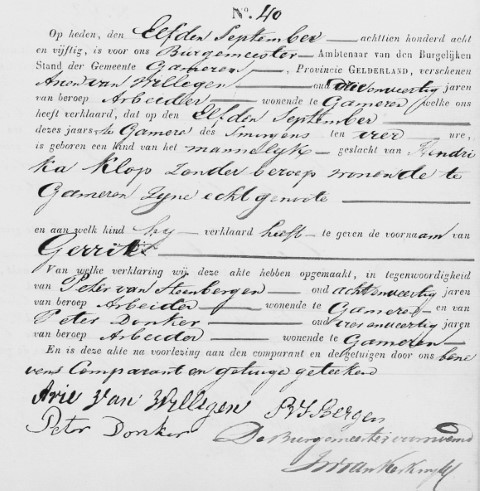 No. 40
Op heden, den Elfden September achttien honderd acht
en vijftig, is voor ons Burgemeester Ambtenaar van den Burgelijken
Stand der Gemeente Gameren, Provincie GELDERLAND, verschenen
Arie van Willegen oud drieenveertig jaren
van beroep Arbeider wonende te Gameren welke ons
heeft verklaard, dat op den Elfden September
dezes jaars te Gameren des Smorgens ten vier ure,
is geboren een kind van het mannelijk geslacht van Hendri
ka Klop zonder beroep wonende te
Gameren zyne echtgenoote
en aan welk kind hy verklaard heeft te geven de voornaam van
Gerrit
Van welke verklaring wij deze akte hebben opgemaakt, in tegenwoordigheid
van Peter van Steenbergen oud achtenveertig jaren
van beroep Arbeider wonende te Gameren en van
Peter Donker oud vierenveertig jaren
van beroep Arbeider wonende te Gameren
En is deze akte na voorlezing aan den comparant en de getuigen door ons bene
vens Comparant en getuige geteekend
Arie Van Willegen
Petr Donker
De Burgemeester voornoemd